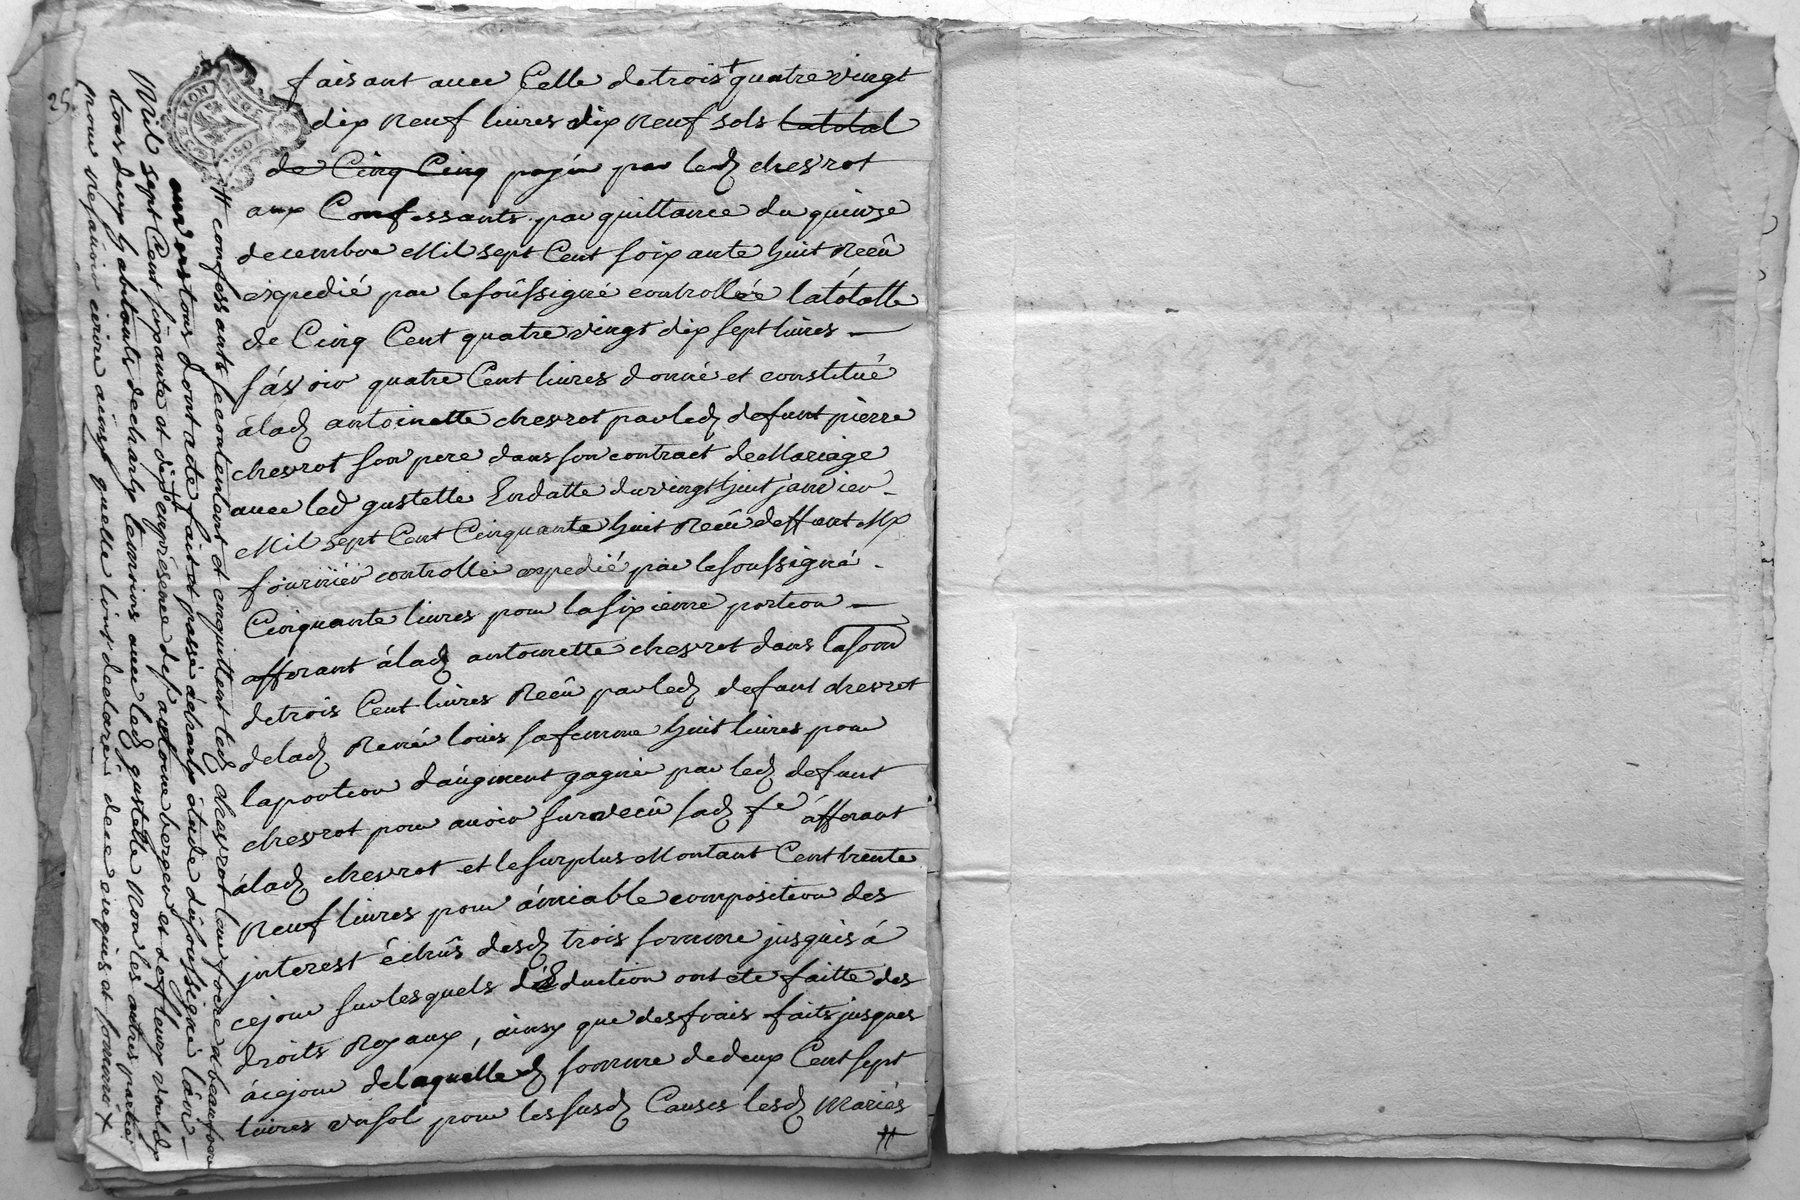 25
faisant avec Celle de trois + quatre vingt
dix neuf livres dix neuf sols la total
de Cinq Cinq payée par led chevrot
aux Confessants par quittance du quinze
decembre Mil sept Cent soixante huit Recû
expedié par le soussigné controllée la tótalle
de Cinq Cent quatre vingt dix sept livres —
sávoir quatre Cent livres donné et constitué
á lad antoinette chevrot par led defunt pierre
chevrot son pere dans son contract de Mariage
avec led gustelle En datte du vingt huit janvier
Mil sept Cent Cinquante huit Recû deffunt Me
fournier controllé expedié par le soussigné
Cinquante livres pour la sixieme portion —
afferant á lad antoinette chevrot dans la som
de trois Cent livres Recû par led defunt chevrot
de lad Renée louis sa femme huit livres pour
la portion d'augment gagnée par led defunt
chevrot pour avoir survecû sad fe áfferant
á lad chevrot et le surplus Montant Cent trente
Neuf livres pour ámiable composition des
jnterest échûs desd trois somme jusques á
ce jour sur lesquels déduction ont ete faitte des
droits Royaux, ainsy que des frais faits jusques
á ce jour de laquelle d somme de deux Cent sept
livres un sol pour les susd Causes lesd Mariés
#
# confessants se contentent et enquittent led chevrot leur frere a beaufrere
aud vertous dont acte fait et passé á charly étude du soussigné lán
Mil sept Cent soixante et dix + en présence de s antoine berger et de fleury
tous deux habitants de charly temoins avec led gustelle Non les autres parties
pour ne savoir écrire ainsy quelle l'ont declarée dece enquis et sommé +